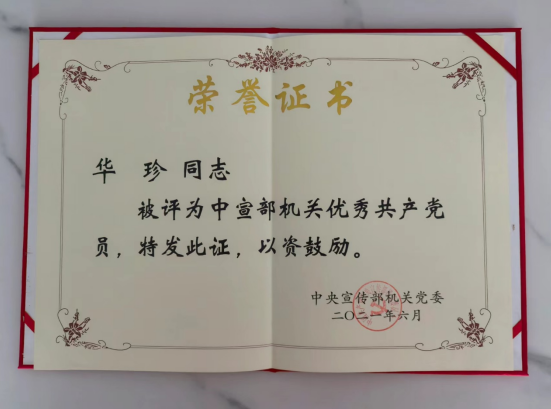 荣誉证书
华 珍 同志
被评为中宣部机关优秀共产党
员，特发此证，以资鼓励。
中央宣传部机关党委
二〇二一年六月